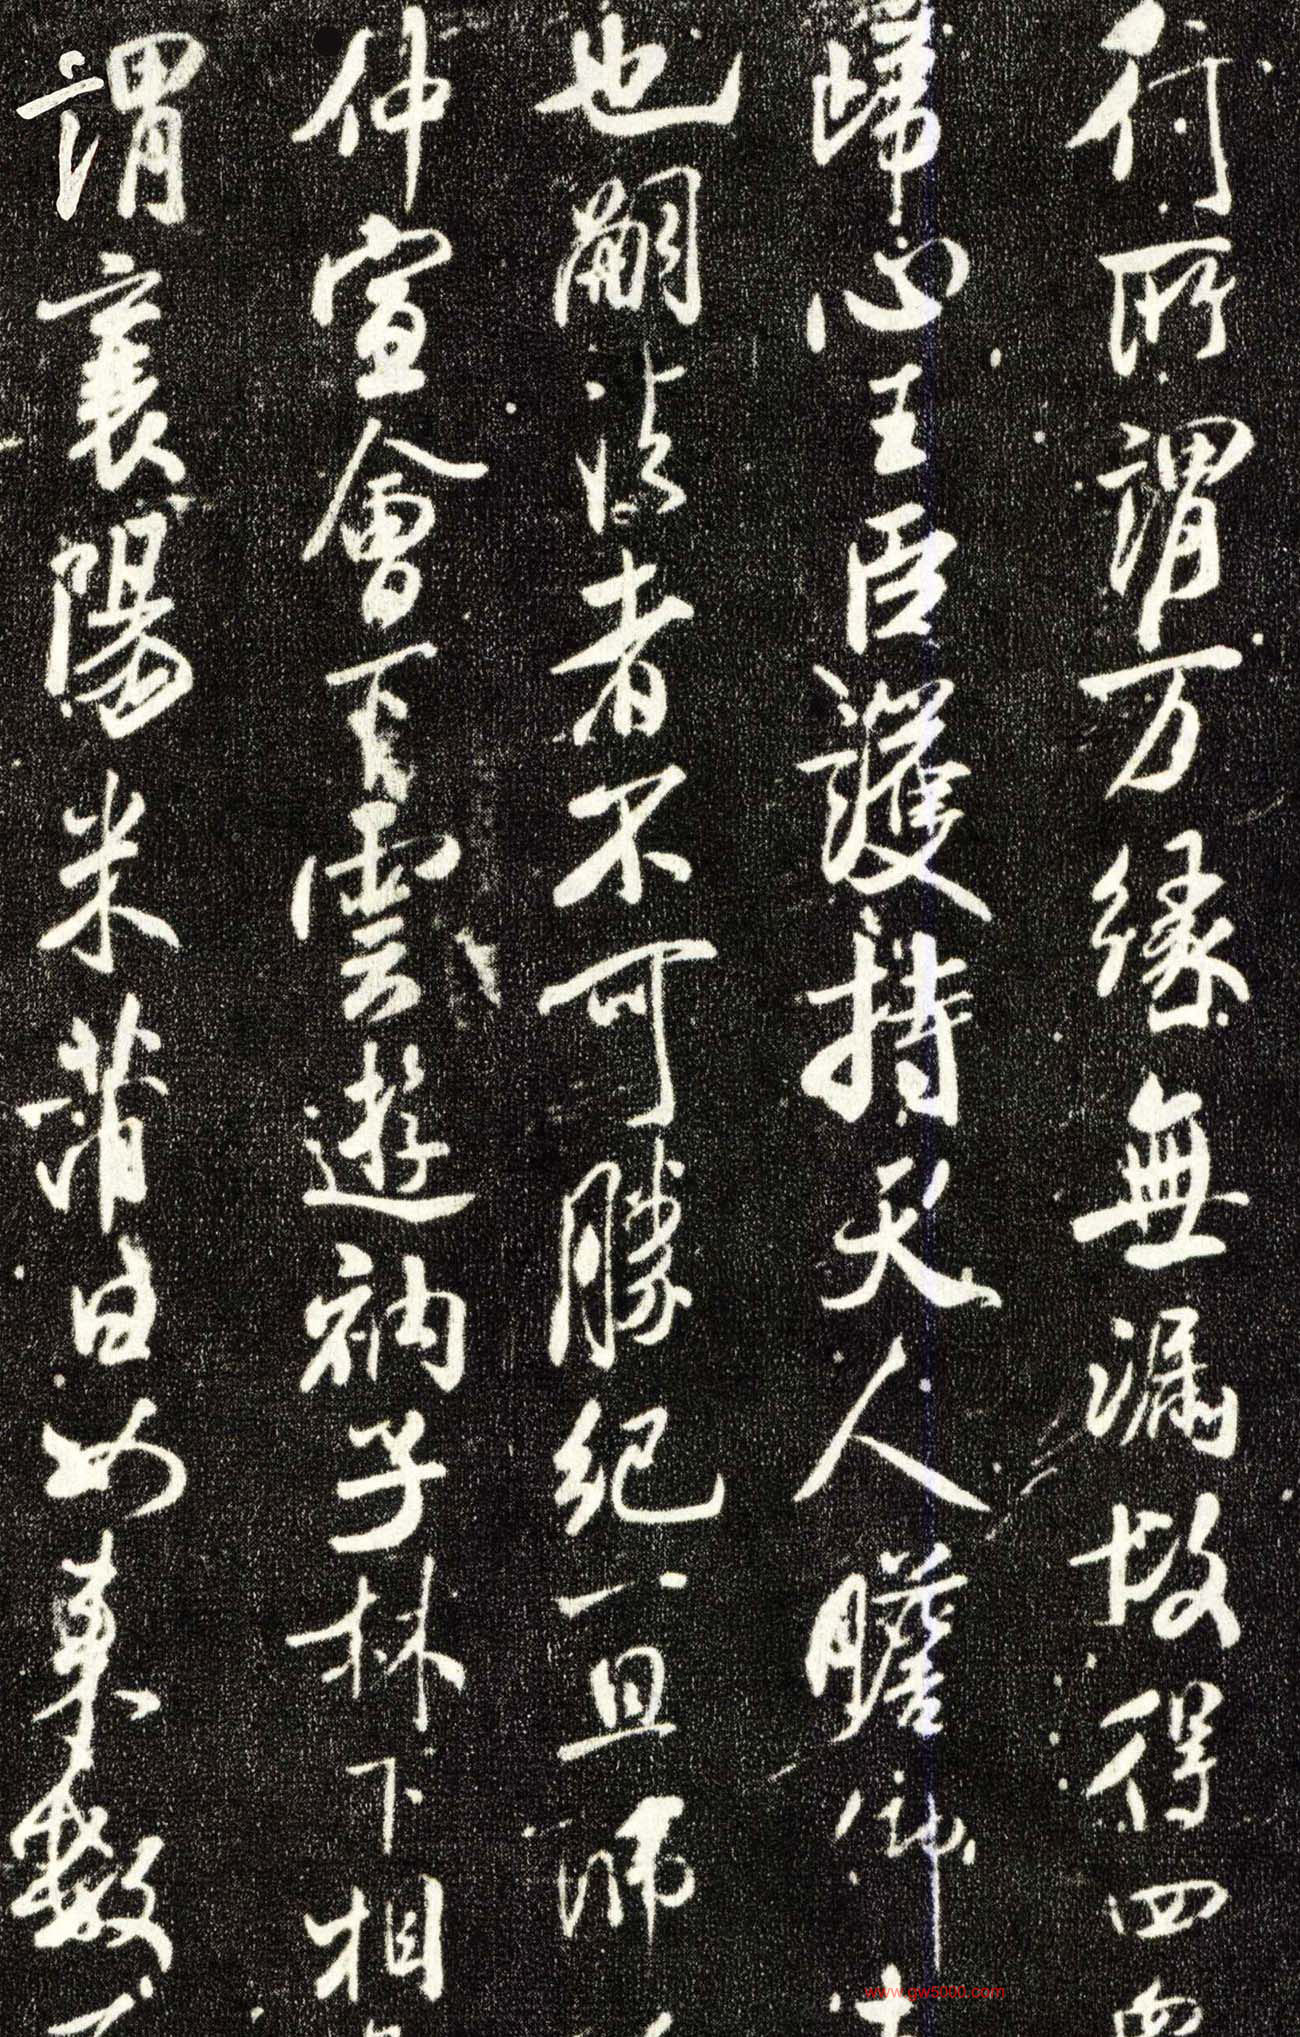 行所謂万緣無漏故得四
歸心王臣護持天人瞻仰
也嗣法者不可勝紀一旦師
仲宣會下雲遊衲子林下相
謂襄陽米芾曰如來數
www.gw5000.com